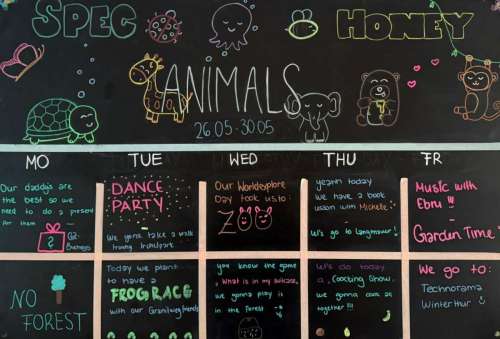 SPEC HONEY
ANIMALS
26.05-30.05
MO TUE WED THU FR
Our daddys are
the best so we
need to do a present
for them
DANCE
PARTY
We gonna take a walk
Our Worldexplore
Day took us to:
ZOO
yeahh today
we have a book
lesson with Michelle
We go to Langmauer!
Music with
Ebru !!!
Garden Time
NO
FOREST
Today we plant
to have a
FROG RACE
with our friends
you know the game
"What is in my suitcase,
we gonna play it
in the forest
We do today
a "Coocking Show.
we gonna cook
together !!!
We go to:
Technorama
Winterthur!